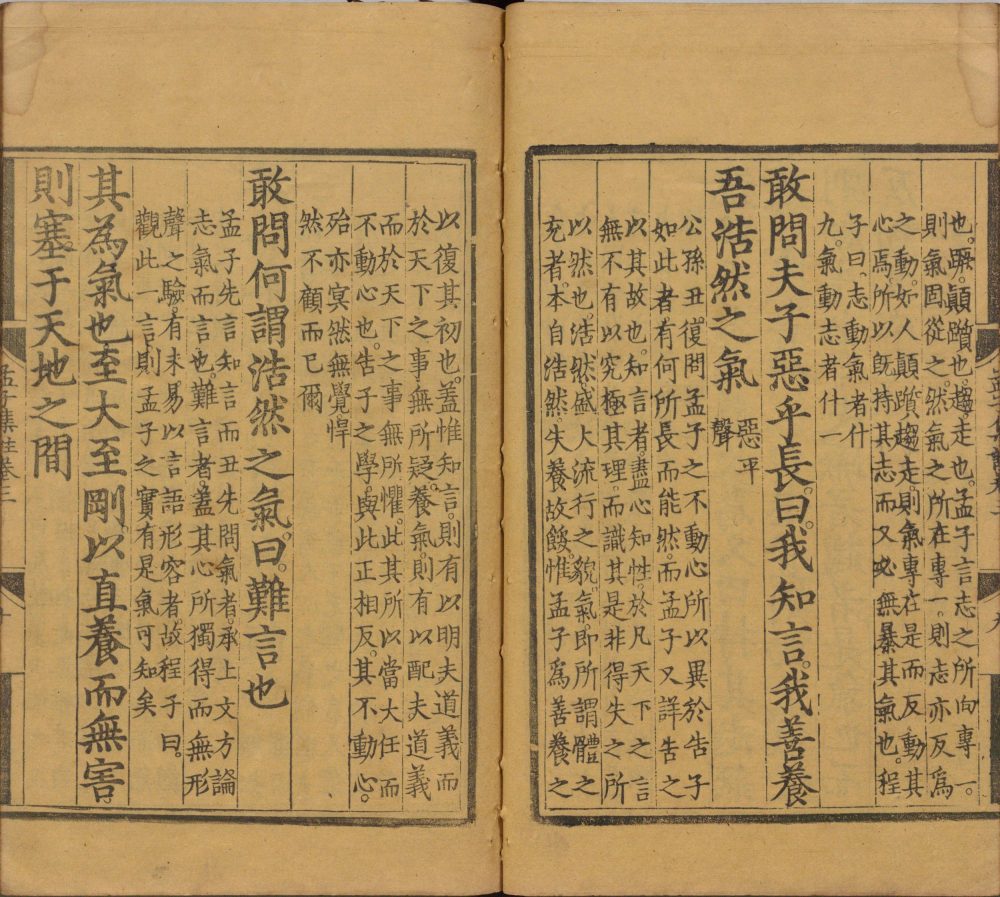 也。蹶。顛躓也。趨走也。孟子言志之所向專一。
則氣固從之。然氣之所在專一。則志亦反爲
之動。如人顛躓趨走。則氣專在是而反動其
心焉。所以旣持其志而又必無暴其氣也。程
子曰。志動氣者什
九。氣動志者什一
敢問夫子惡乎長。曰。我知言。我善養
吾浩然之氣
惡平
聲
公孫丑。復問孟子之不動心所以異於告子
如此者有何所長而能然。而孟子又詳告之
以其故也。知言者。盡心知性。於凡天下之言
無不有以究極其理。而識其是非得失之所
以然也。浩然。盛大流行之貌。氣。即所謂體之
充者。本自浩然。失養故餒。惟孟子爲善養之
以復其初也。蓋惟知言。則有以明夫道義而
於天下之事無所疑。養氣。則有以配夫道義
而於天下之事無所懼。此其所以當大任而
不動心也。告子之學。與此正相反。其不動心。
殆亦冥然無覺悍
然不顧而已爾
敢問何謂浩然之氣。曰。難言也
孟子先言知言而丑先問氣者。承上文方論
志氣而言也。難言者。蓋其心所獨得。而無形
聲之驗。有未易以言語形容者。故程子曰。
觀此一言。則孟子之實有是氣可知矣
其爲氣也至大至剛。以直養而無害
則塞于天地之間
孟子集註卷三
十